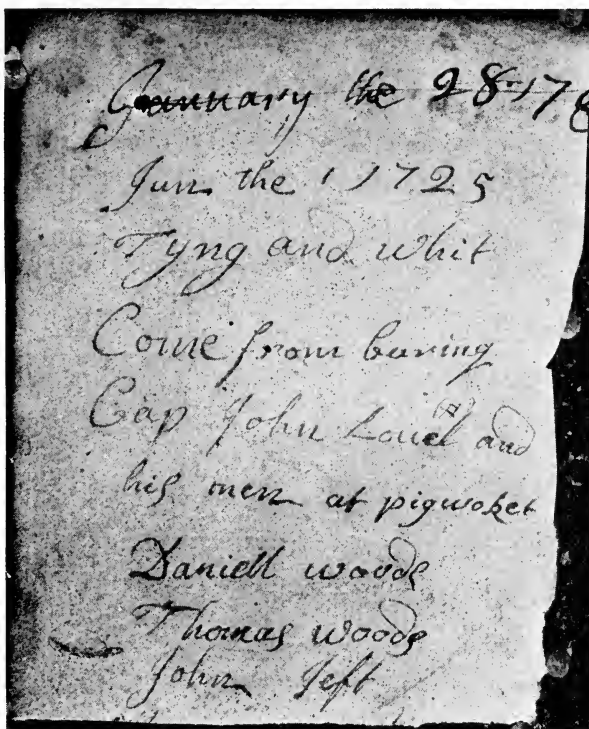 January the 28 176
Jun the 1 1725
Tyng and Whit
Come from buring
Cap John Louel and
his men at pigwoket
Daniell woods
Thomas woods
John Jeft